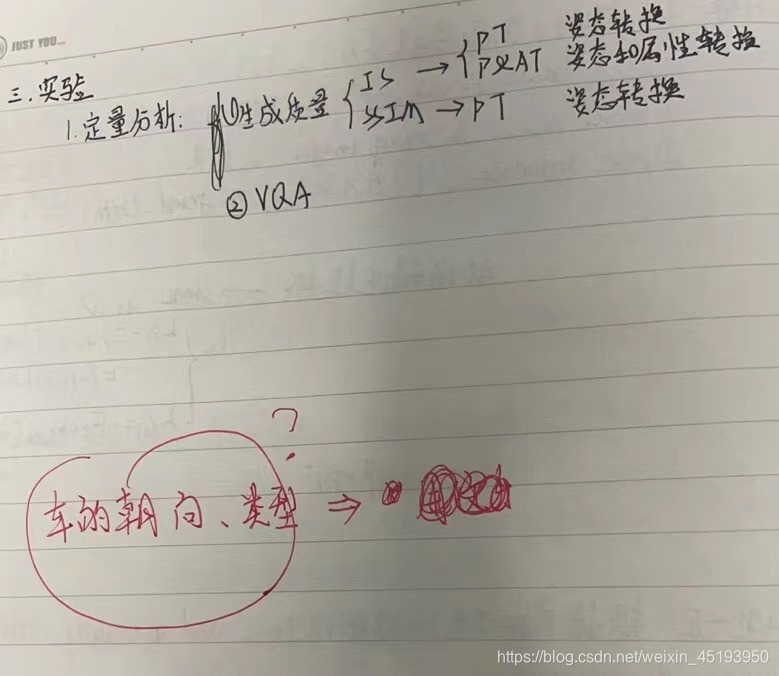 JUST YOU...
三.实验
1.定量分析: ①生成质量 { IS → { PT 姿态转换
P&AT 姿态和属性转换
SSIM → PT 姿态转换
② VQA
?
车的朝向、类型 ⇒
https://blog.csdn.net/weixin_45193950